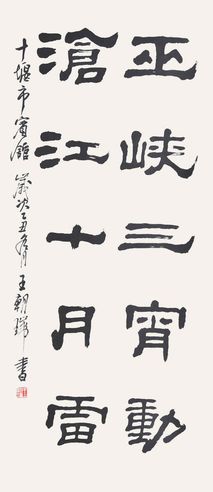 巫峽三宵動
滄江十月雷
十堰市賓館 歲次乙丑冬月 王朝瑞書